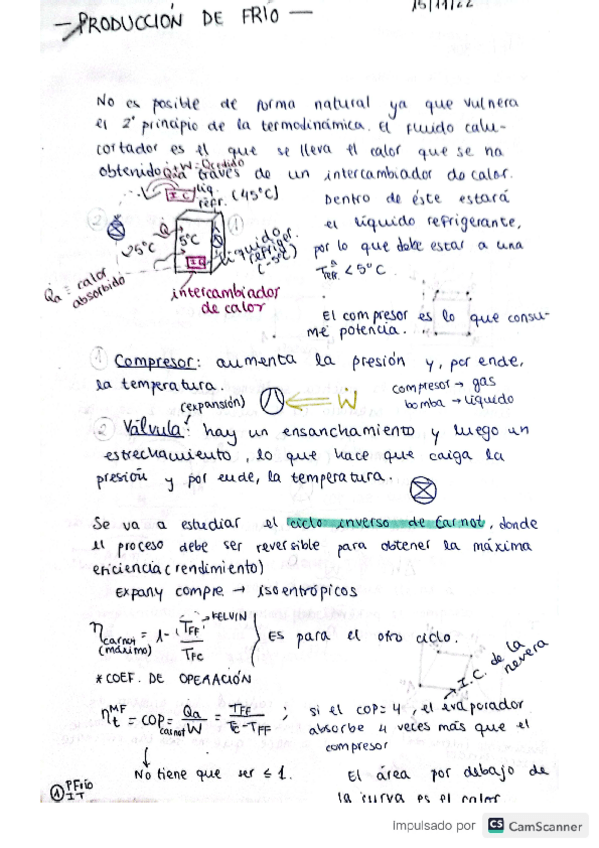 - PRODUCCIÓN DE FRÍO -
15/11/22
No es posible de forma natural ya que vulnera
el 2º principio de la termodinámica. El fluido calo-
cortador es el que se lleva el calor que se ha
obtenido a través de un intercambiador de calor.
Qa + W = Qcedido
I C
liq.
refr. (45°C)
Dentro de éste estará
el líquido refrigerante,
por lo que debe estar a una
TREFR. < 5°C
2
25°C
Q
5°C
1
líquido
refriger.
(-5°C)
IC
Qa = calor
absorbido
intercambiador
de calor
El compresor es lo que consu-
me potencia.
1 Compresor: aumenta la presión y, por ende,
la temperatura.
compresor → gas
bomba → líquido
Ẇ
(expansión)
2 Válvula: hay un ensanchamiento y luego un
estrechamiento, lo que hace que caiga la
presión y por ende, la temperatura.
Se va a estudiar el ciclo inverso de Carnot, donde
el proceso debe ser reversible para obtener la máxima
eficiencia (rendimiento)
Expan y compre → isoentrópicos
ηcarnot = 1 - TFF / TFC
(máximo)
→ KELVIN
Es para el otro ciclo.
I.C. de la
nevera
* COEF. DE OPERACIÓN
ηt MF = COPcarnot = Qa / W = TFF / TC - TFF ; si el COP = 4, el evaporador
absorbe 4 veces más que el
compresor
No tiene que ser ≤ 1.
El área por debajo de
la curva es el calor
1 PFrío
IT
Impulsado por CS CamScanner